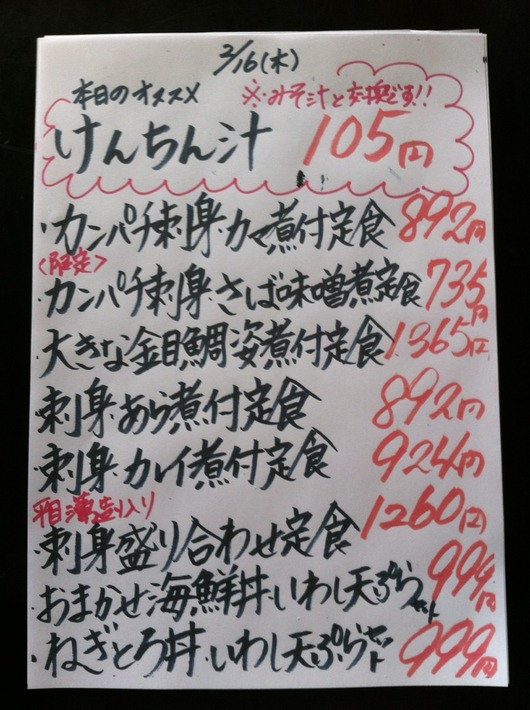 2/16(木)
本日のオススメ ※みそ汁と交換です!!
けんちん汁 105円
・カンパチ刺身・カマ煮付定食 892円
<限定>
・カンパチ刺身・さば味噌煮定食 735円
・大きな金目鯛姿煮付定食 1.365円
・刺身・あら煮付定食 892円
・刺身・カレイ煮付定食 924円
平目薄造り入り
・刺身盛り合わせ定食 1260円
・おまかせ海鮮丼・いわし天ぷらセット 999円
・ねぎとろ丼・いわし天ぷらセット 999円